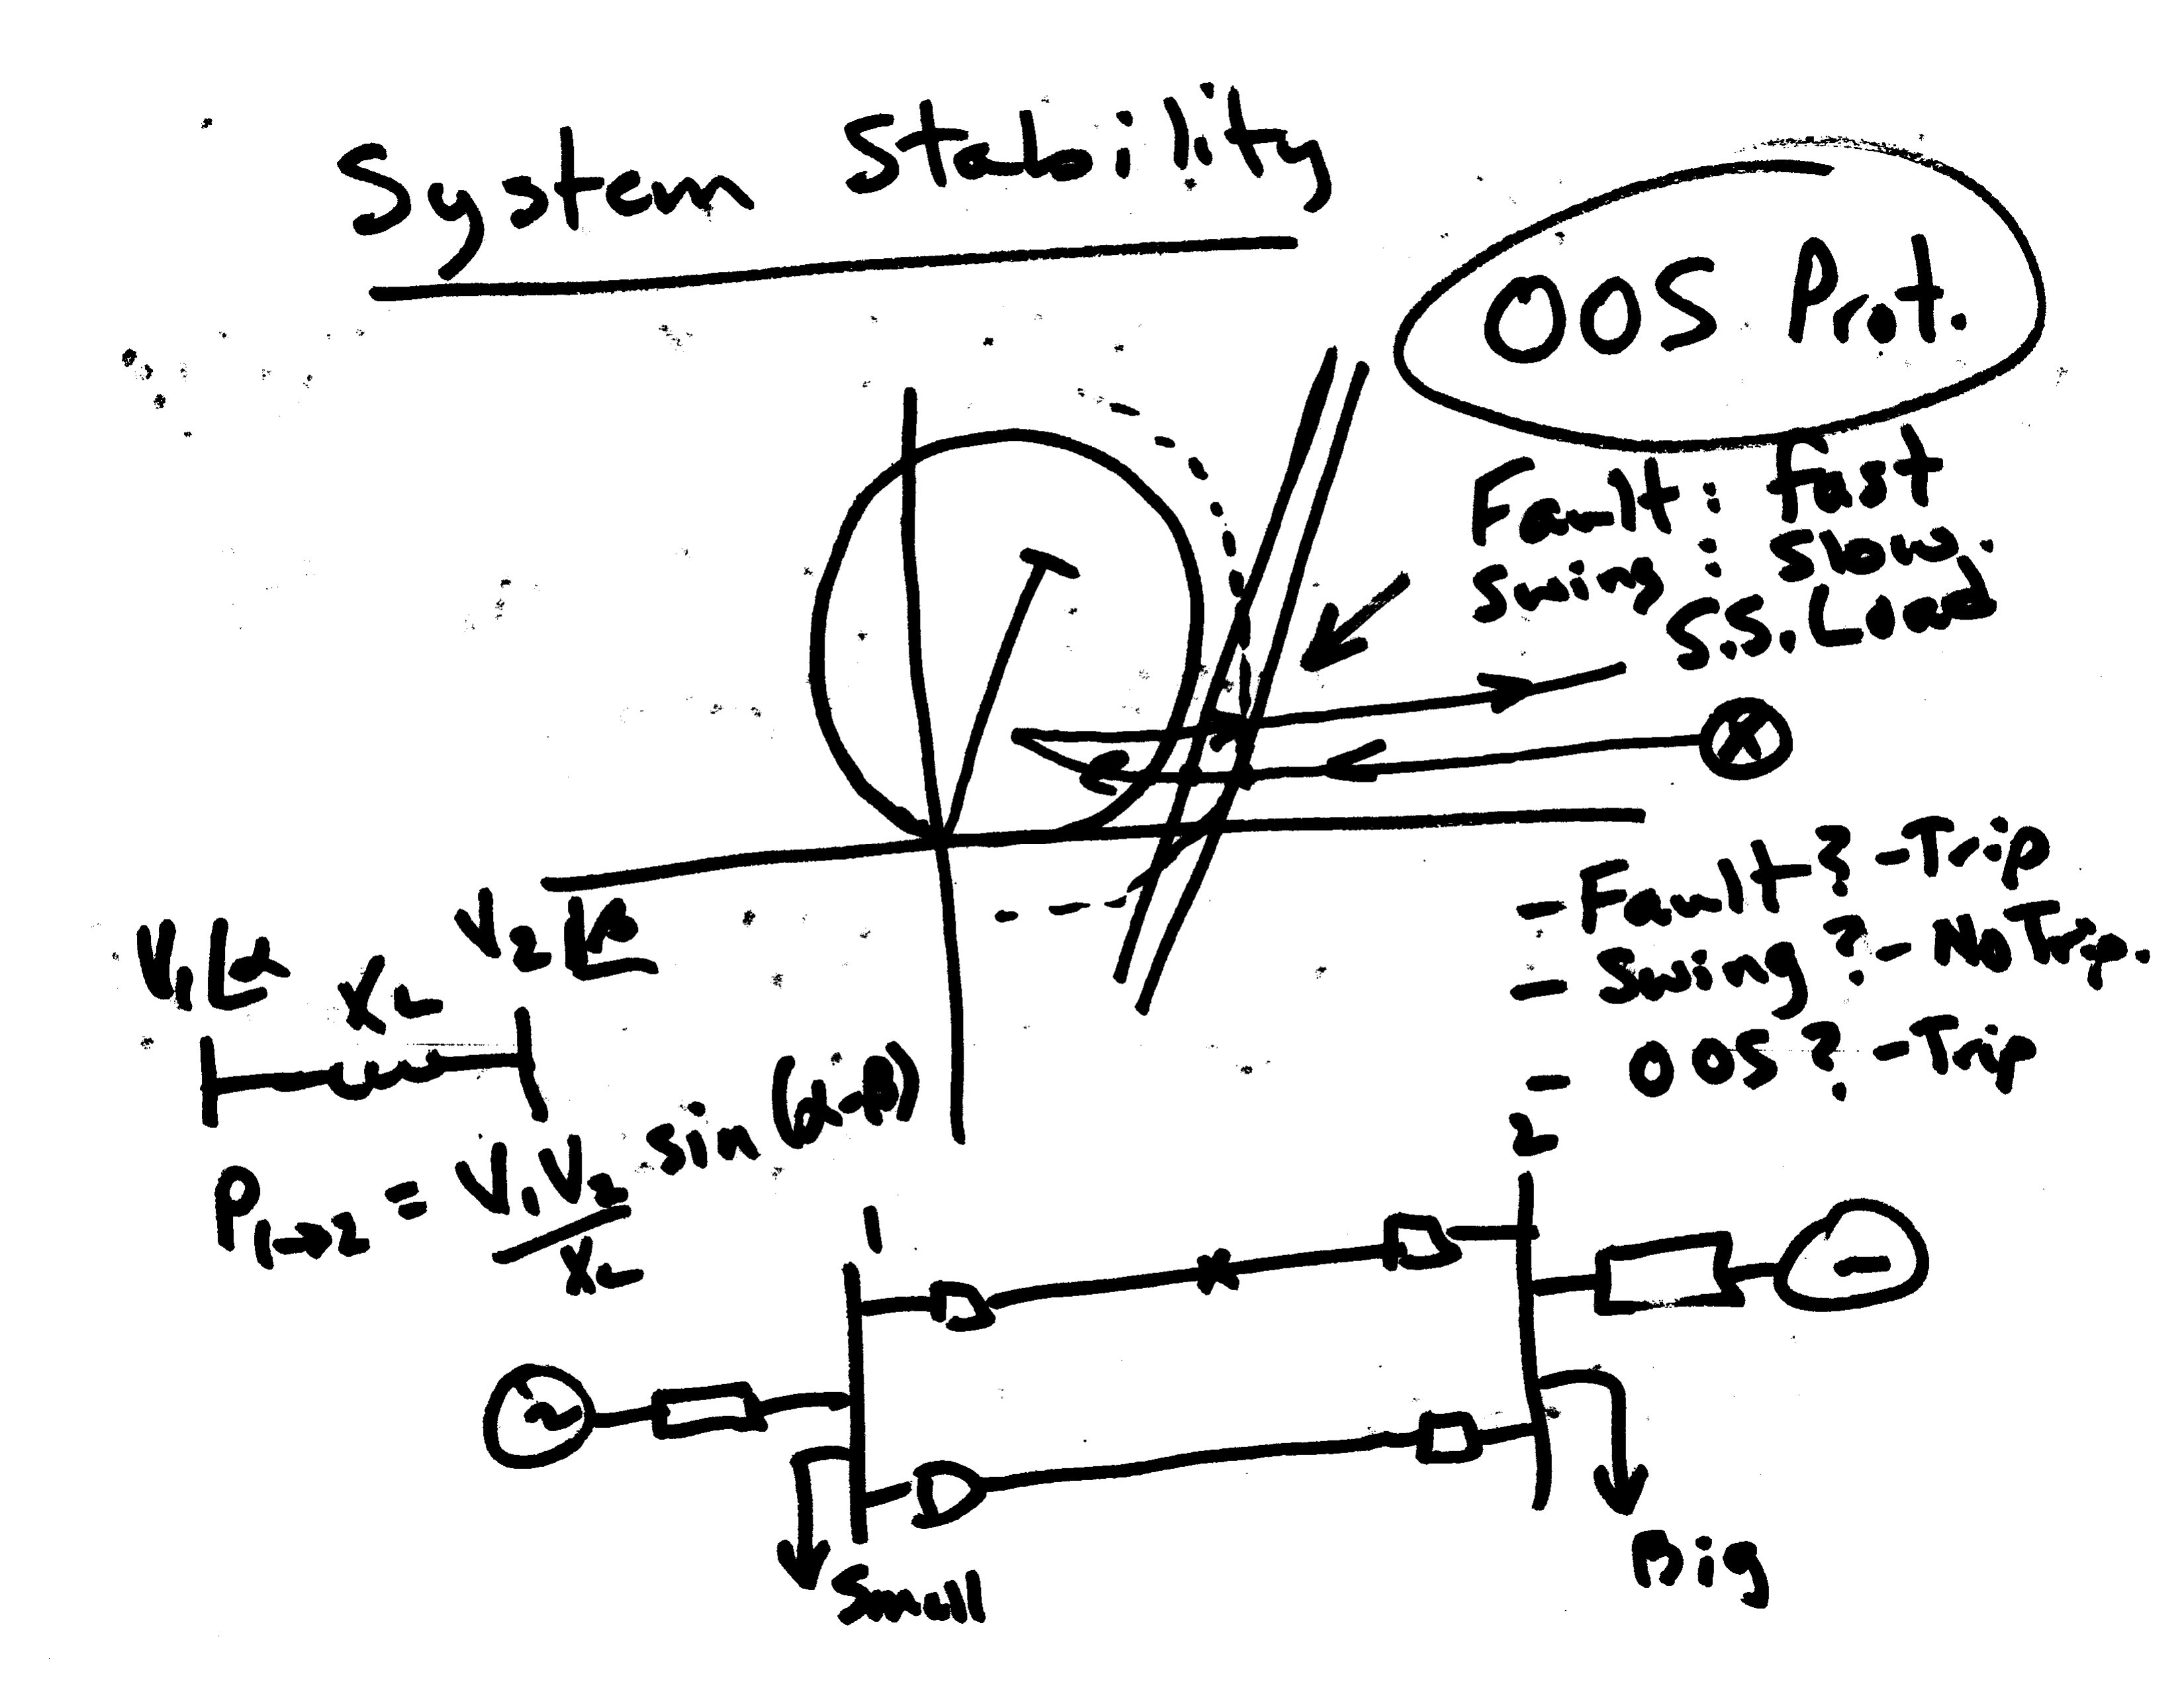 System Stability
OOS Prot.
Fault : fast
Swing : Slow.
S.S. Load
X
- Fault ? - Trip
- Swing ? - No Trip.
- OOS ? - Trip
V1∠α XL V2∠β
P1→2 = V1V2/XL sin(α-β)
1
2
~
Small
Big